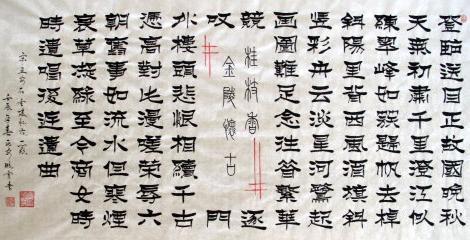 登臨送目正故國晚秋
天氣初肅千里澄江似
練翠峰如簇歸帆去棹
斜陽里背西風酒旗斜
矗彩舟雲淡星河鷺起
畫圖難足念往昔繁華
競逐
桂枝香
金陵懷古
嘆門
外樓頭悲恨相續千古
憑高對此漫嗟榮辱六
朝舊事如流水但寒煙
衰草凝綠至今商女時
時猶唱後庭遺曲
宋王安石